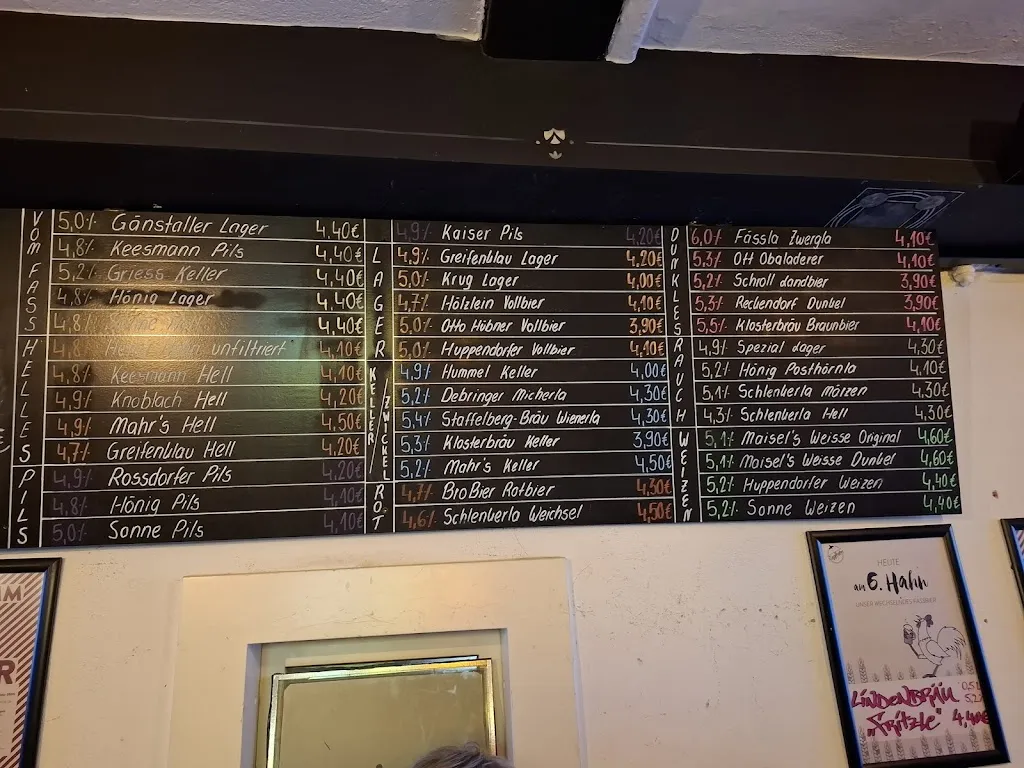 VOM FASS
5,0% Gänstaller Lager 4,40€
4,8% Keesmann Pils 4,40€
5,2% Griess Keller 4,40€
4,8% Hönig Lager 4,40€
4,8% 4,40€
HELLES
4,8% unfiltriert 4,10€
4,8% Keesmann Hell 4,10€
4,9% Knoblach Hell 4,20€
4,9% Mahr's Hell 4,50€
4,7% Greifenklau Hell 4,20€
PILS
4,9% Rossdorfer Pils 4,20€
4,8% Hönig Pils 4,10€
5,0% Sonne Pils 4,10€
4,9% Kaiser Pils 4,20€
LAGER
4,9% Greifenklau Lager 4,20€
5,0% Krug Lager 4,00€
4,7% Hölzlein Vollbier 4,10€
5,0% Otto Hübner Vollbier 3,90€
5,0% Huppendorfer Vollbier 4,10€
KELLER / ZWICKEL
4,9% Hummel Keller 4,00€
5,2% Debringer Micherla 4,30€
5,4% Staffelberg-Bräu Wienerla 4,30€
5,3% Klosterbräu Keller 3,90€
5,2% Mahr's Keller 4,50€
ROT
4,7% BroBier Rotbier 4,30€
4,6% Schlenkerla Weichsel 4,50€
DUNKLES
6,0% Fässla Zwergla 4,10€
5,3% Ott Obaladerer 4,10€
5,2% Schroll Landbier 3,90€
5,3% Reckendorf Dunkel 3,90€
5,5% Klosterbräu Braunbier 4,10€
RAUCH
4,9% Spezial Lager 4,30€
5,2% Hönig Posthörnla 4,10€
5,1% Schlenkerla Märzen 4,30€
4,3% Schlenkerla Hell 4,30€
WEIZEN
5,1% Maisel's Weisse Original 4,60€
5,1% Maisel's Weisse Dunkel 4,60€
5,2% Huppendorfer Weizen 4,40€
5,2% Sonne Weizen 4,40€
HEUTE
am 6. Hahn
UNSER WECHSELNDES FASSBIER
LINDENBRÄU
"FRITZLE" 4,40€